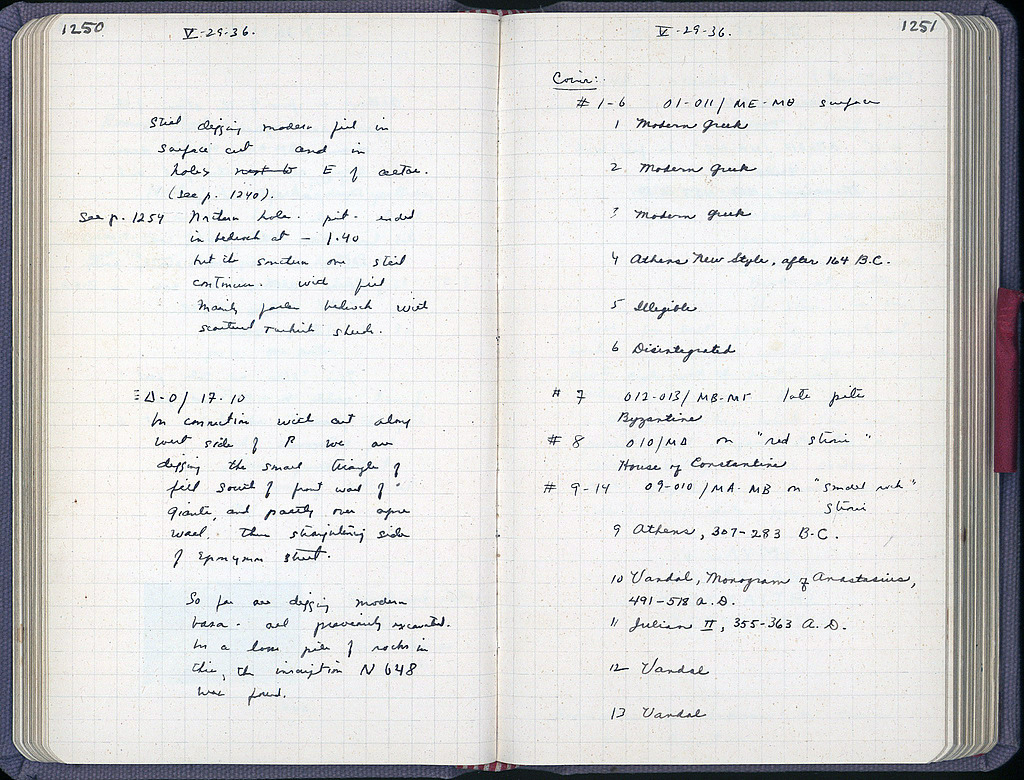 1250
V-29-36.
Still digging modern fill in
surface cut and in
holes next to E of
(see p. 1240).
See p. 1254 Northern hole - pit - ended
in bedrock at - 1.40
but the southern one still
continues with fill
Mainly bedrock with
scattered Turkish sherds.
Δ-O/17-10
In connection with cut along
west side of R we are
digging the small triangle of
fill south of front wall of
Giants, and partly over
wall. Thus straightening side
of Eponymon Street.
So far are digging modern
- all previously excavated.
In a loose pile of rocks in
this, the inscription N 648
was found.
1251
V-29-36.
Coins:
# 1-6 01-011/ ME-MΘ surface
1 Modern Greek
2 Modern Greek
3 Modern Greek
4 Athens New Style, after 164 B.C.
5 Illegible
6 Disintegrated
# 7 012-013/ MB-MΓ late pite
Byzantine
# 8 010/MΔ on "red stroni"
House of Constantine
# 9-14 09-010/MA-MB on "small rock"
stroni
9 Athens, 307-283 B.C.
10 Vandal, Monogram of Anastasius,
491-518 A.D.
11 Julian II, 355-363 A.D.
12 Vandal
13 Vandal